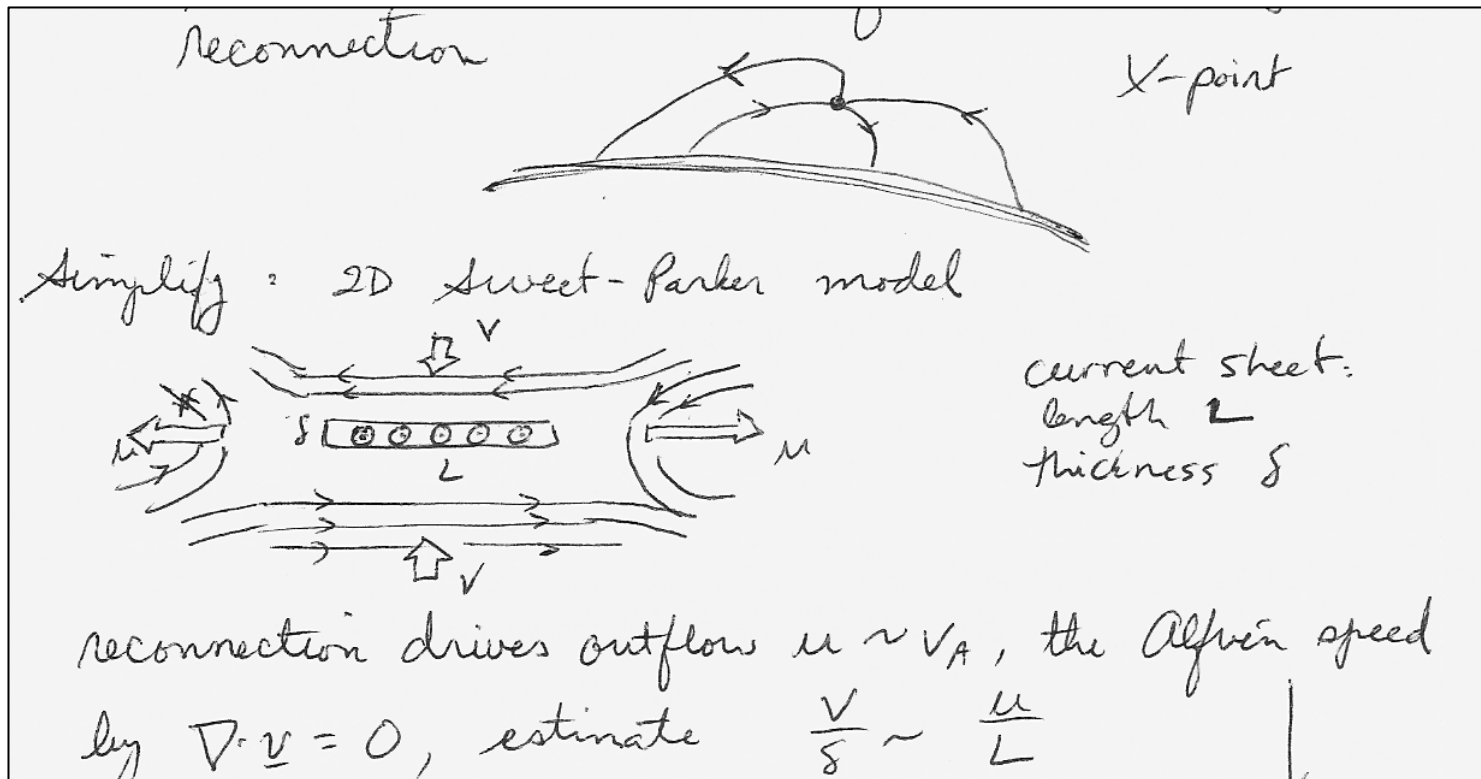 reconnection
X-point
Simplify : 2D Sweet-Parker model
v
u
δ
L
u
v
current sheet:
length L
thickness δ
reconnection drives outflow u ~ v_A, the Alfvén speed
by ∇·v = 0, estimate v/δ ~ u/L